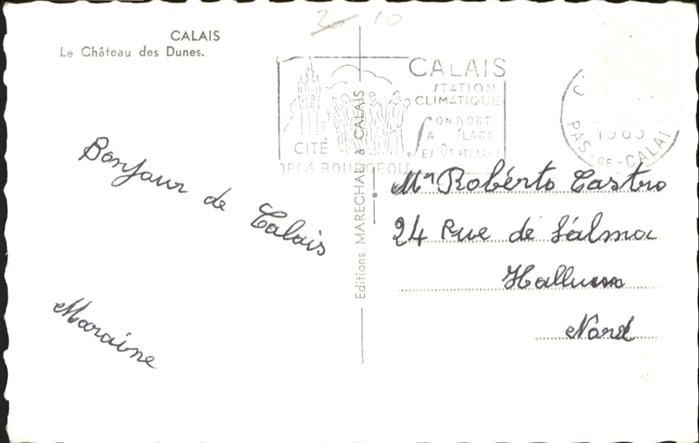 3 10
CALAIS
Le Château des Dunes.
CALAIS
STATION
CLIMATIQUE
SON PORT
SA PLAGE
SES DENTELLES
CITÉ
DES 6 BOURGEOIS
PAS-DE-CALAI
Editions MARECHAL à CALAIS
Bonjour de
Calais
Maraine
Mr Robérto Castro
24 Rue de
Halluin
Nord